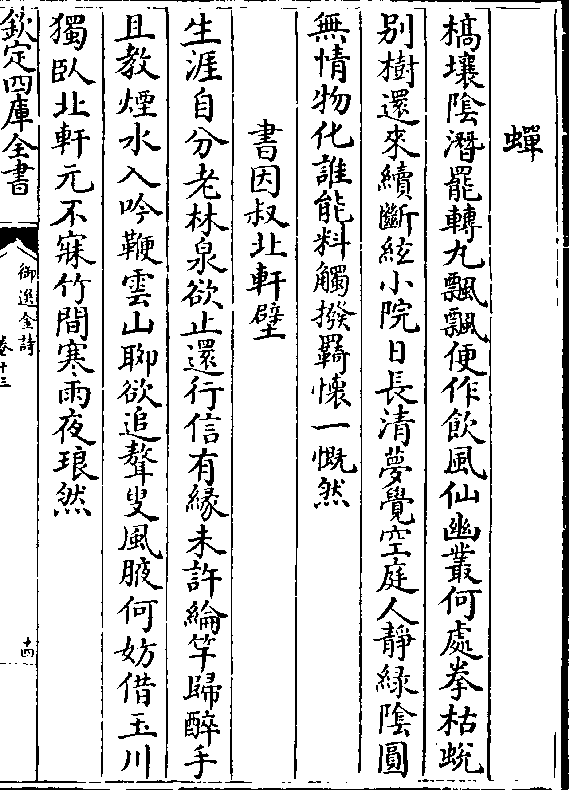 蟬
槁壤陰潛罷轉丸飄飄便作飲風仙幽叢何處拳枯蛻
别樹還來續斷絃小院日長清夢覺空庭人靜緑陰圓
無情物化誰能料觸撥羇懷一慨然
書因叔北軒壁
生涯自分老林泉欲止還行信有縁未許綸竿歸醉手
且教煙水入吟鞭雲山聊欲追聱叟風腋何妨借玉川
獨臥北軒元不寐竹間寒雨夜琅然
欽定四庫全書
御選金詩
卷十三
十四